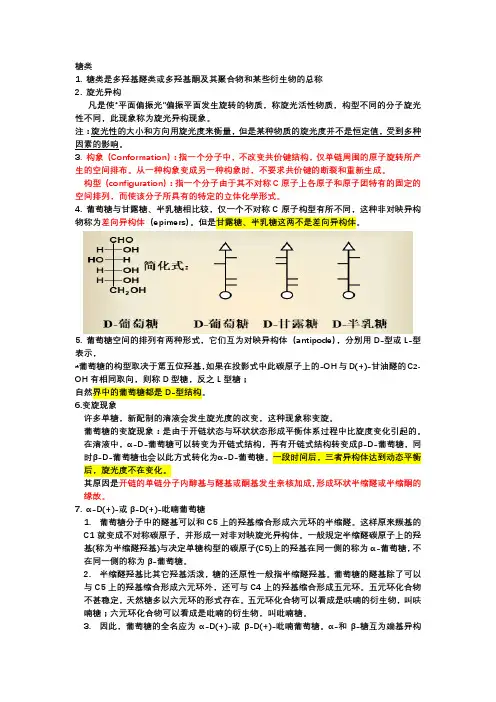 糖类
1. 糖类是多羟基醛类或多羟基酮及其聚合物和某些衍生物的总称
2. 旋光异构
凡是使"平面偏振光"偏振平面发生旋转的物质，称旋光活性物质，构型不同的分子旋光
性不同，此现象称为旋光异构现象。
注：旋光性的大小和方向用旋光度来衡量，但是某种物质的旋光度并不是恒定值，受到多种
因素的影响。
3. 构象（Conformation）：指一个分子中，不改变共价键结构，仅单键周围的原子旋转所产
生的空间排布。从一种构象变成另一种构象时，不要求共价键的断裂和重新生成。
构型（configuration）：指一个分子由于其不对称 C 原子上各原子和原子团特有的固定的
空间排列，而使该分子所具有的特定的立体化学形式。
4. 葡萄糖与甘露糖、半乳糖相比较，仅一个不对称 C 原子构型有所不同，这种非对映异构
物称为差向异构体（epimers），但是甘露糖、半乳糖这两不是差向异构体。
CHO
H OH
HO H
H OH
H OH
CH₂OH
简化式：
D-葡萄糖 D-葡萄糖 D-甘露糖 D-半乳糖
5. 葡萄糖空间的排列有两种形式，它们互为对映异构体（antipode），分别用 D-型或 L-型
表示，
*葡萄糖的构型取决于第五位羟基,如果在投影式中此碳原子上的-OH 与 D(+)-甘油醛的 C2-
OH 有相同取向，则称 D 型糖，反之 L 型糖；
自然界中的葡萄糖都是 D-型结构。
6.变旋现象
许多单糖，新配制的溶液会发生旋光度的改变，这种现象称变旋。
葡萄糖的变旋现象：是由于开链状态与环状状态形成平衡体系过程中比旋度变化引起的。
在溶液中，α-D-葡萄糖可以转变为开链式结构，再有开链式结构转变成β-D-葡萄糖，同
时β-D-葡萄糖也会以此方式转化为α-D-葡萄糖，一段时间后，三者异构体达到动态平衡
后，旋光度不在变化。
其原因是开链的单链分子内醇基与醛基或酮基发生亲核加成，形成环状半缩醛或半缩酮的
缘故。
7. α-D(+)-或 β-D(+)-吡喃葡萄糖
1. 葡萄糖分子中的醛基可以和 C5 上的羟基缩合形成六元环的半缩醛。这样原来羰基的
C1 就变成不对称碳原子，并形成一对非对映旋光异构体，一般规定半缩醛碳原子上的羟
基(称为半缩醛羟基)与决定单糖构型的碳原子(C5)上的羟基在同一侧的称为 α-葡萄糖，不
在同一侧的称为 β-葡萄糖。
2. 半缩醛羟基比其它羟基活泼，糖的还原性一般指半缩醛羟基。葡萄糖的醛基除了可以
与 C5 上的羟基缩合形成六元环外，还可与 C4 上的羟基缩合形成五元环。五元环化合物
不甚稳定，天然糖多以六元环的形式存在。五元环化合物可以看成是呋喃的衍生物，叫呋
喃糖；六元环化合物可以看成是吡喃的衍生物，叫吡喃糖。
3. 因此，葡萄糖的全名应为 α-D(+)-或 β-D(+)-吡喃葡萄糖。α-和 β-糖互为端基异构